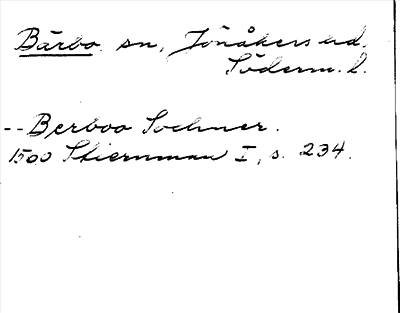 Bärbo sn, Jönåkers hd.
Söderm. l.
-- Berboo Sochner.
1500 Stiernman I, s. 234.